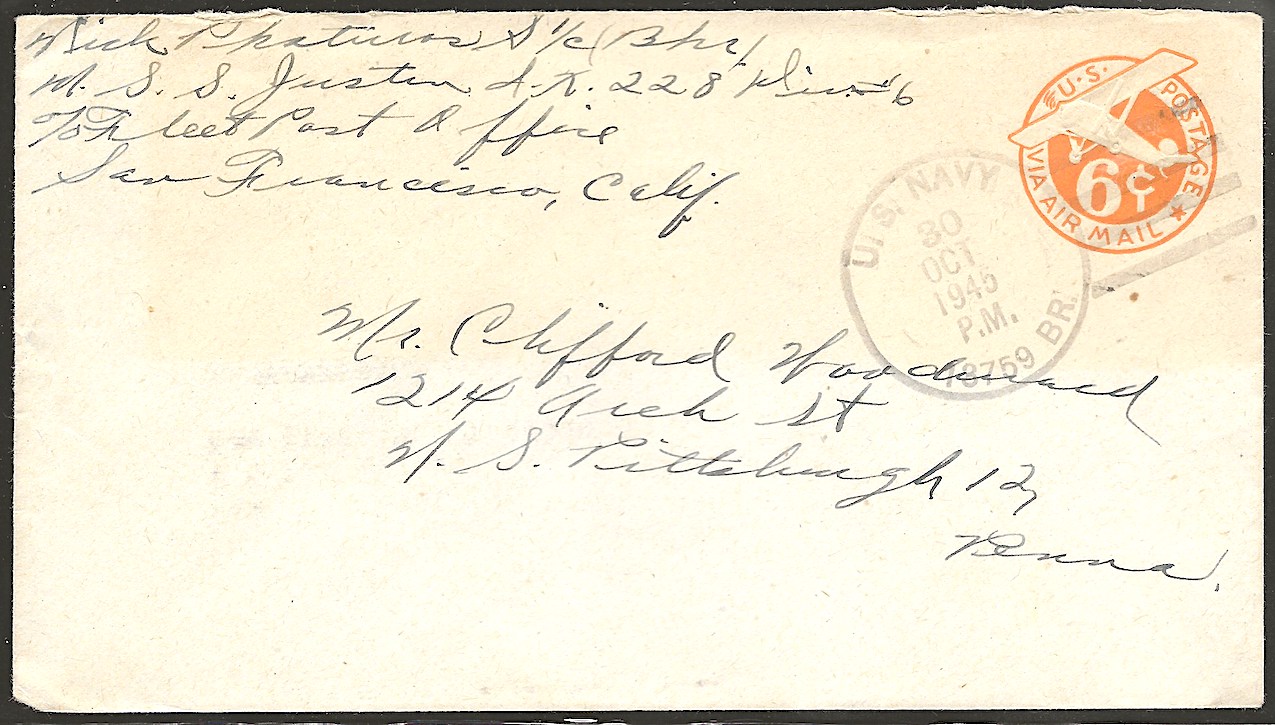 Nick Pkaturos S 1/c (Bkr)
U. S. S. Justin I.X. 228 Div. 6
℅ Fleet Post Office
San Francisco, Calif.
U.S. POSTAGE
VIA AIR MAIL
6 C
U.S. NAVY
30
OCT
1945
P.M.
BR.
Mr. Clifford Woodward
1214 Arch St
N. S. Pittsburgh 12,
Penna.